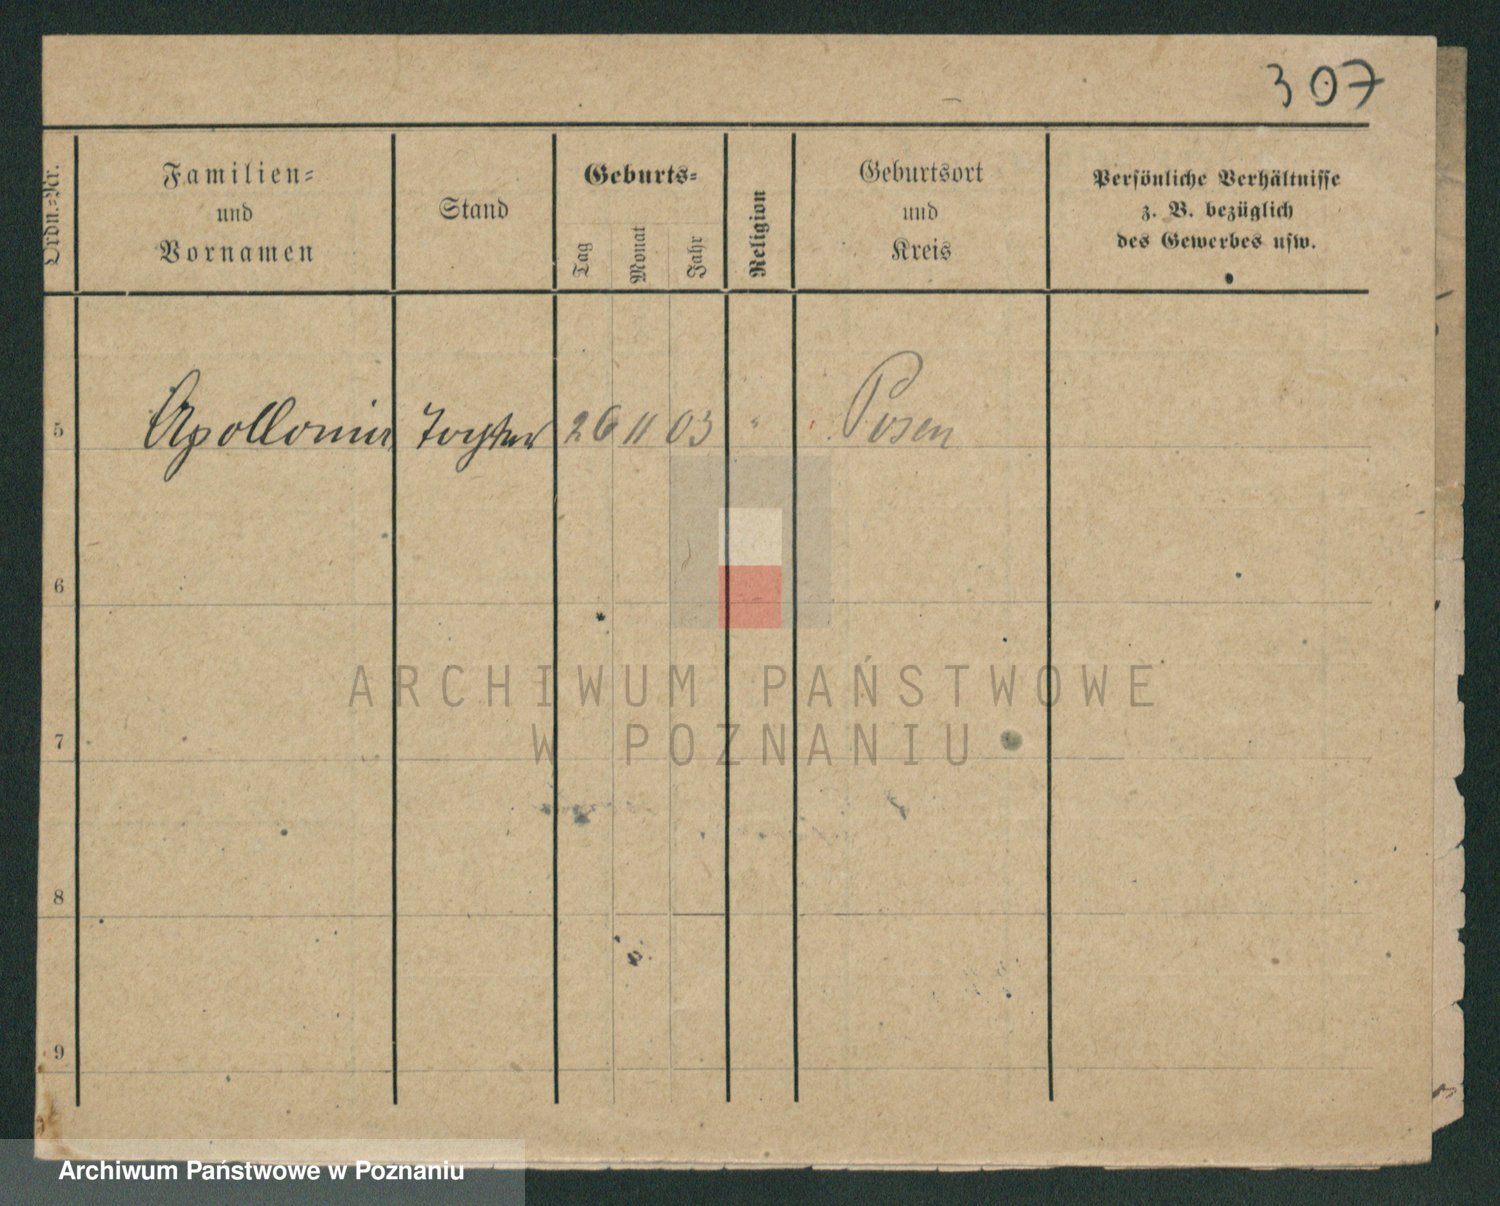 307
Ordn.-Nr.
Familien-
und
Vornamen
Stand
Geburts-
Tag
Monat
Jahr
Religion
Geburtsort
und
Kreis
Persönliche Verhältnisse
z. B. bezüglich
des Gewerbes usw.
5 Apollonia Tochter 26 11 03 " Posen
6
7
8
9
ARCHIWUM PAŃSTWOWE
W POZNANIU
Archiwum Państwowe w Poznaniu